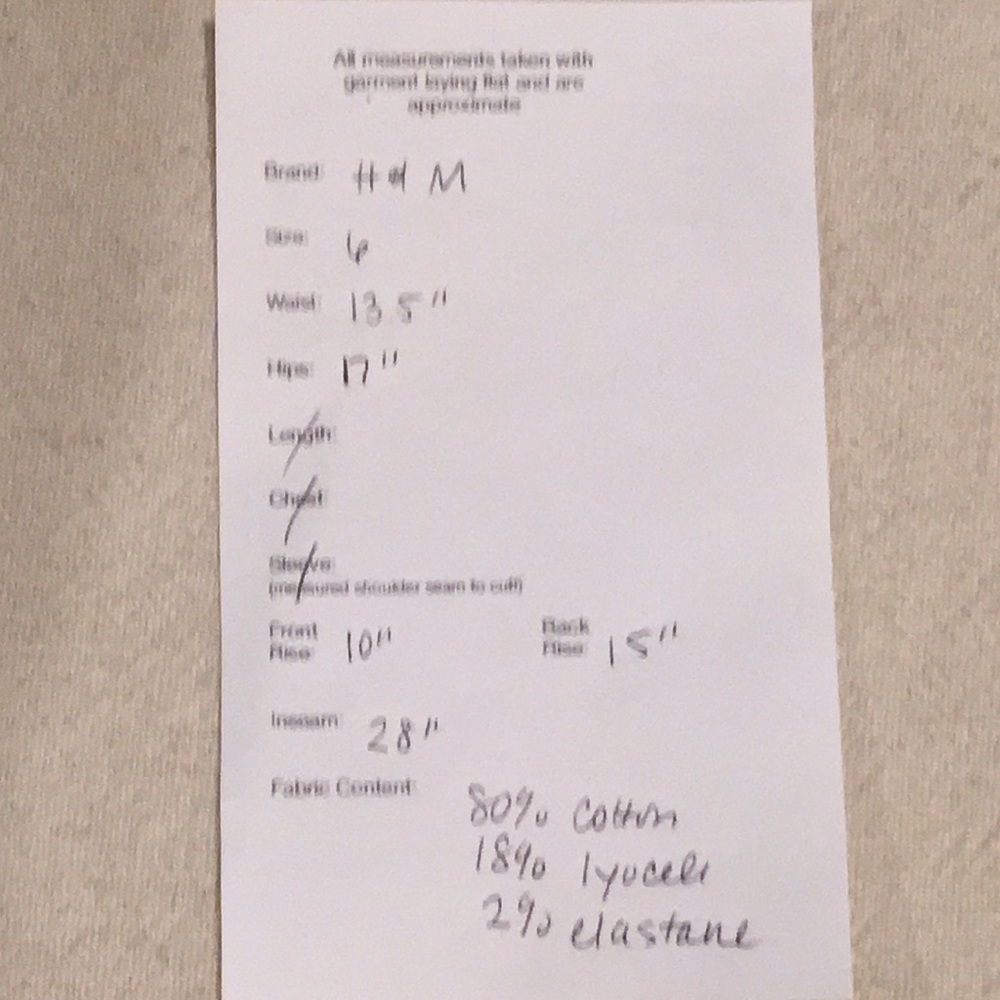 All measurements taken with
garment laying flat and are
approximate
Brand: H & M
Size: 6
Waist: 13.5"
Hips: 17"
Length:
Chest:
Sleeve:
(measured shoulder seam to cuff)
Front Rise: 10" Back Rise: 15"
Inseam: 28"
Fabric Content: 80% cotton
18% lyocell
2% elastane